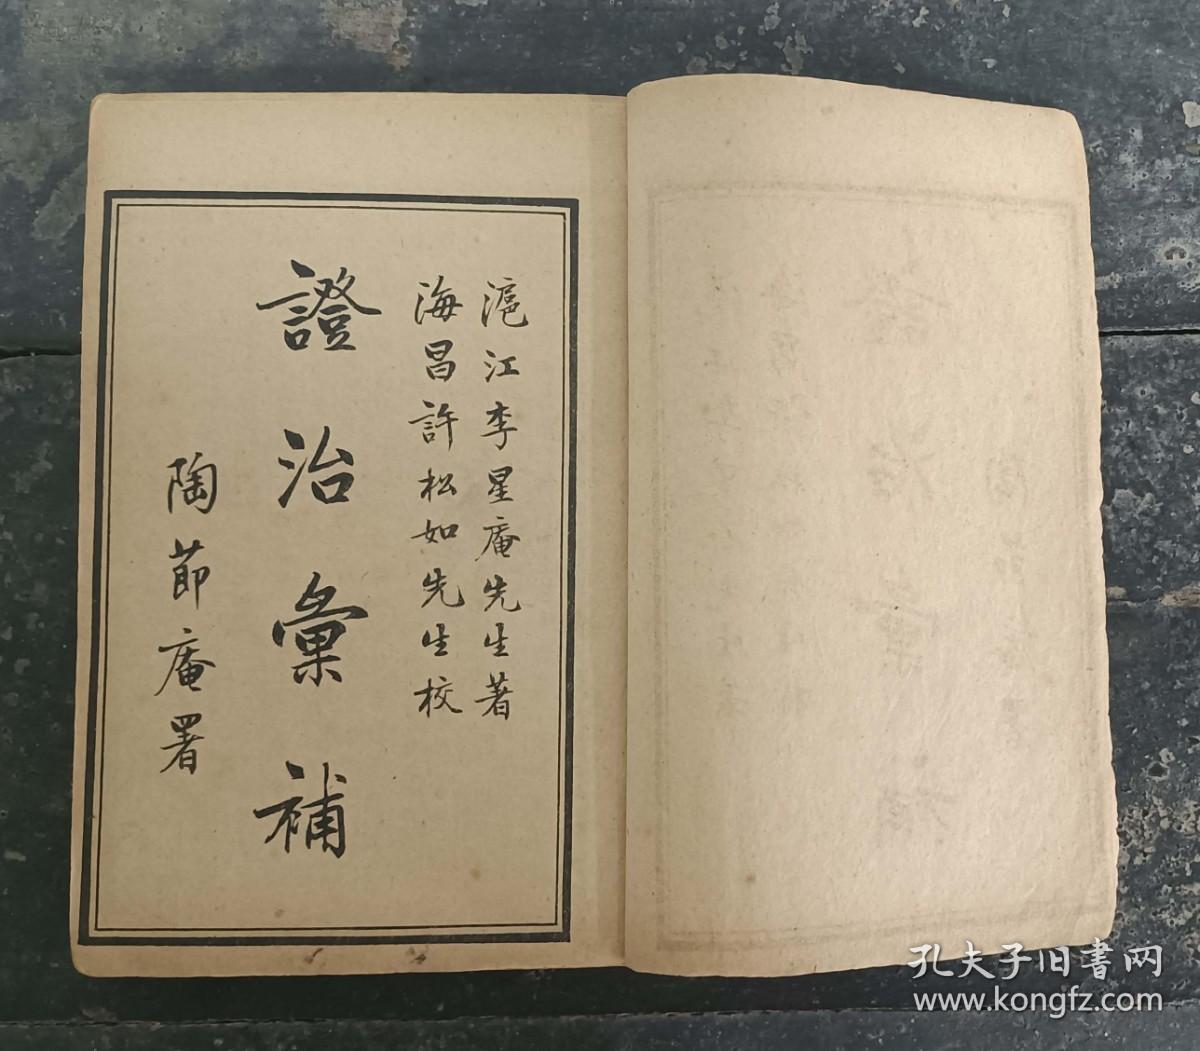 滬江李星庵先生著
海昌許松如先生校
證治彙補
陶節庵署
孔夫子旧書网
www.kongfz.com